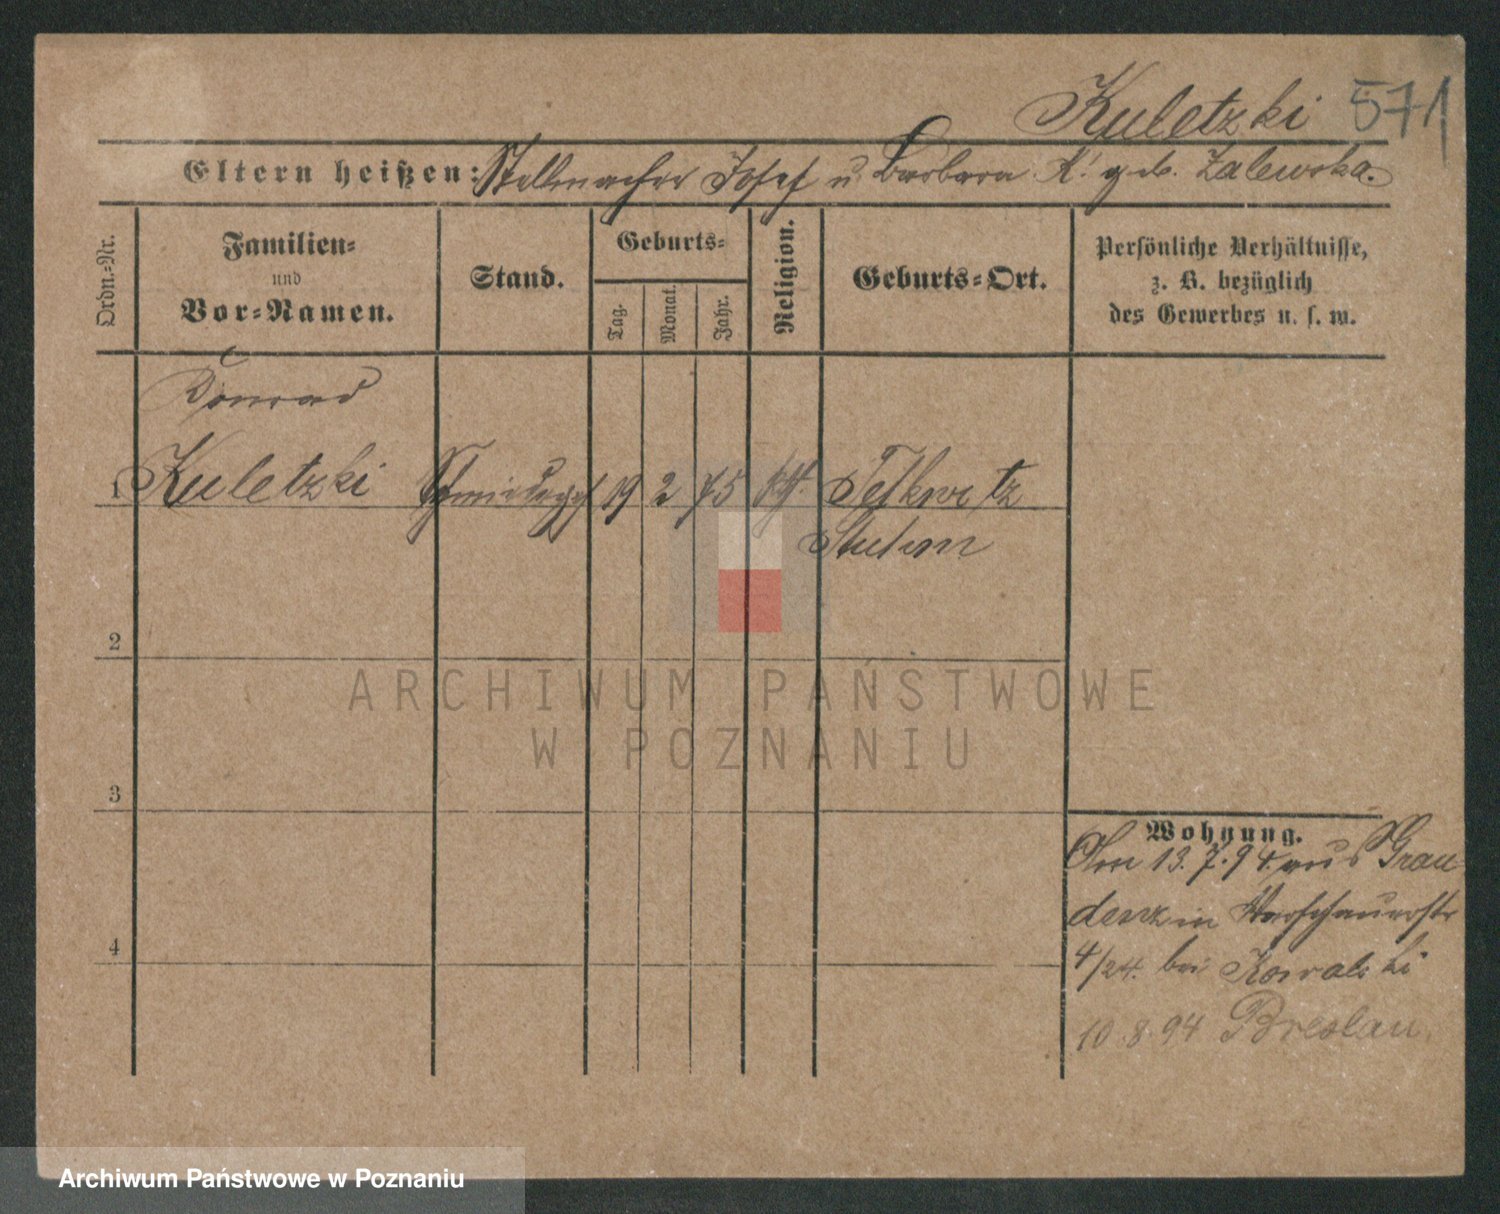 Kuletzki 571
Eltern heißen: Stellmacher Josef u. Barbara K. geb. Zalewska.
Ordn.=Nr.
Familien=
und
Vor=Namen.
Stand.
Geburts=
Tag.
Monat.
Jahr.
Religion.
Geburts=Ort.
Persönliche Verhältnisse,
z. B. bezüglich
des Gewerbes u. s. w.
Konrad
1 Kuletzki Schmiedeges 19 2 75 kth.
Stuhm
2
3
4
Wohnung.
Am 13.7.94. aus Grau
denz in Warschauerstr
4/24. bei Kowalski
10.8.94 Breslau.
ARCHIWUM PAŃSTWOWE
W POZNANIU
Archiwum Państwowe w Poznaniu